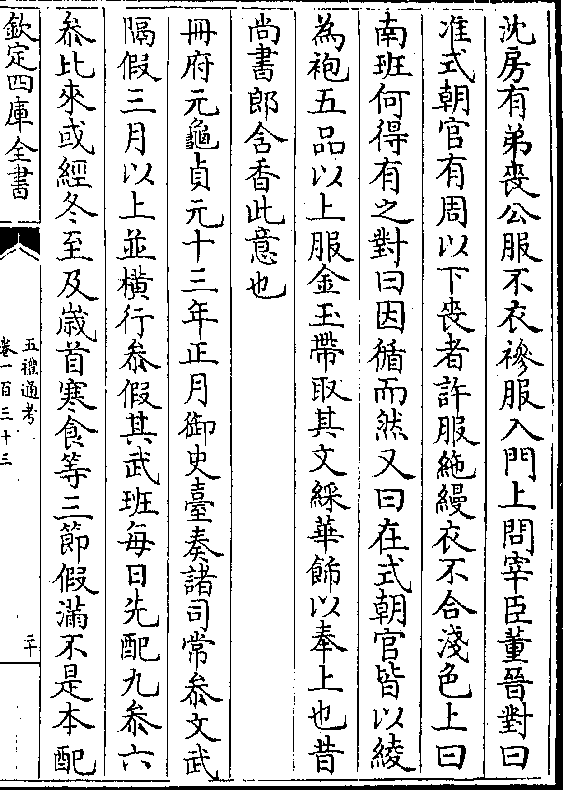 沈房有弟喪公服不衣襂服入門上問宰臣董晉對曰
准式朝官有周以下喪者許服絁縵衣不合淺色上曰
南班何得有之對曰因循而然又曰在式朝官皆以綾
為袍五品以上服金玉帶取其文綵華飾以奉上也昔
尚書郎含香此意也
冊府元龜貞元十三年正月御史臺奏諸司常叅文武
隔假三月以上並橫行叅假其武班每日先配九叅六
叅比來或經冬至及嵗首寒食等三節假滿不是本配
欽定四庫全書
五禮通考
卷一百三十三
二十